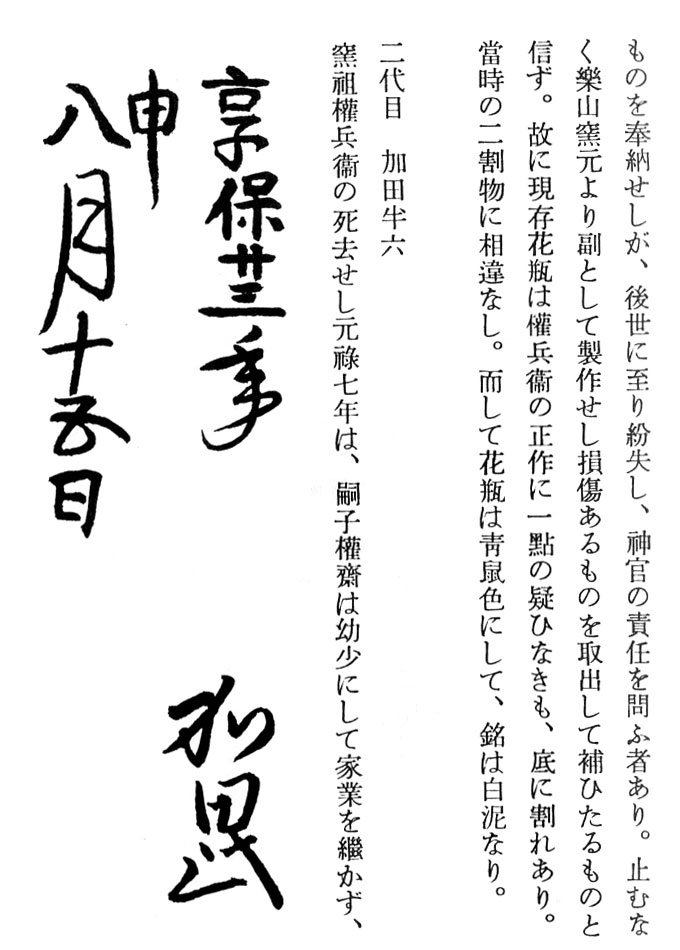 ものを奉納せしが、後世に至り紛失し、神官の責任を問ふ者あり。止むな
く樂山窯元より副として製作せし損傷あるものを取出して補ひたるものと
信ず。故に現存花瓶は權兵衞の正作に一點の疑ひなきも、底に割れあり。
當時の二割物に相違なし。而して花瓶は靑鼠色にして、銘は白泥なり。
二代目　加田半六
窯祖權兵衞の死去せし元祿七年は、嗣子權齋は幼少にして家業を繼かず、
享保廿三年
申
八月十五日
加田